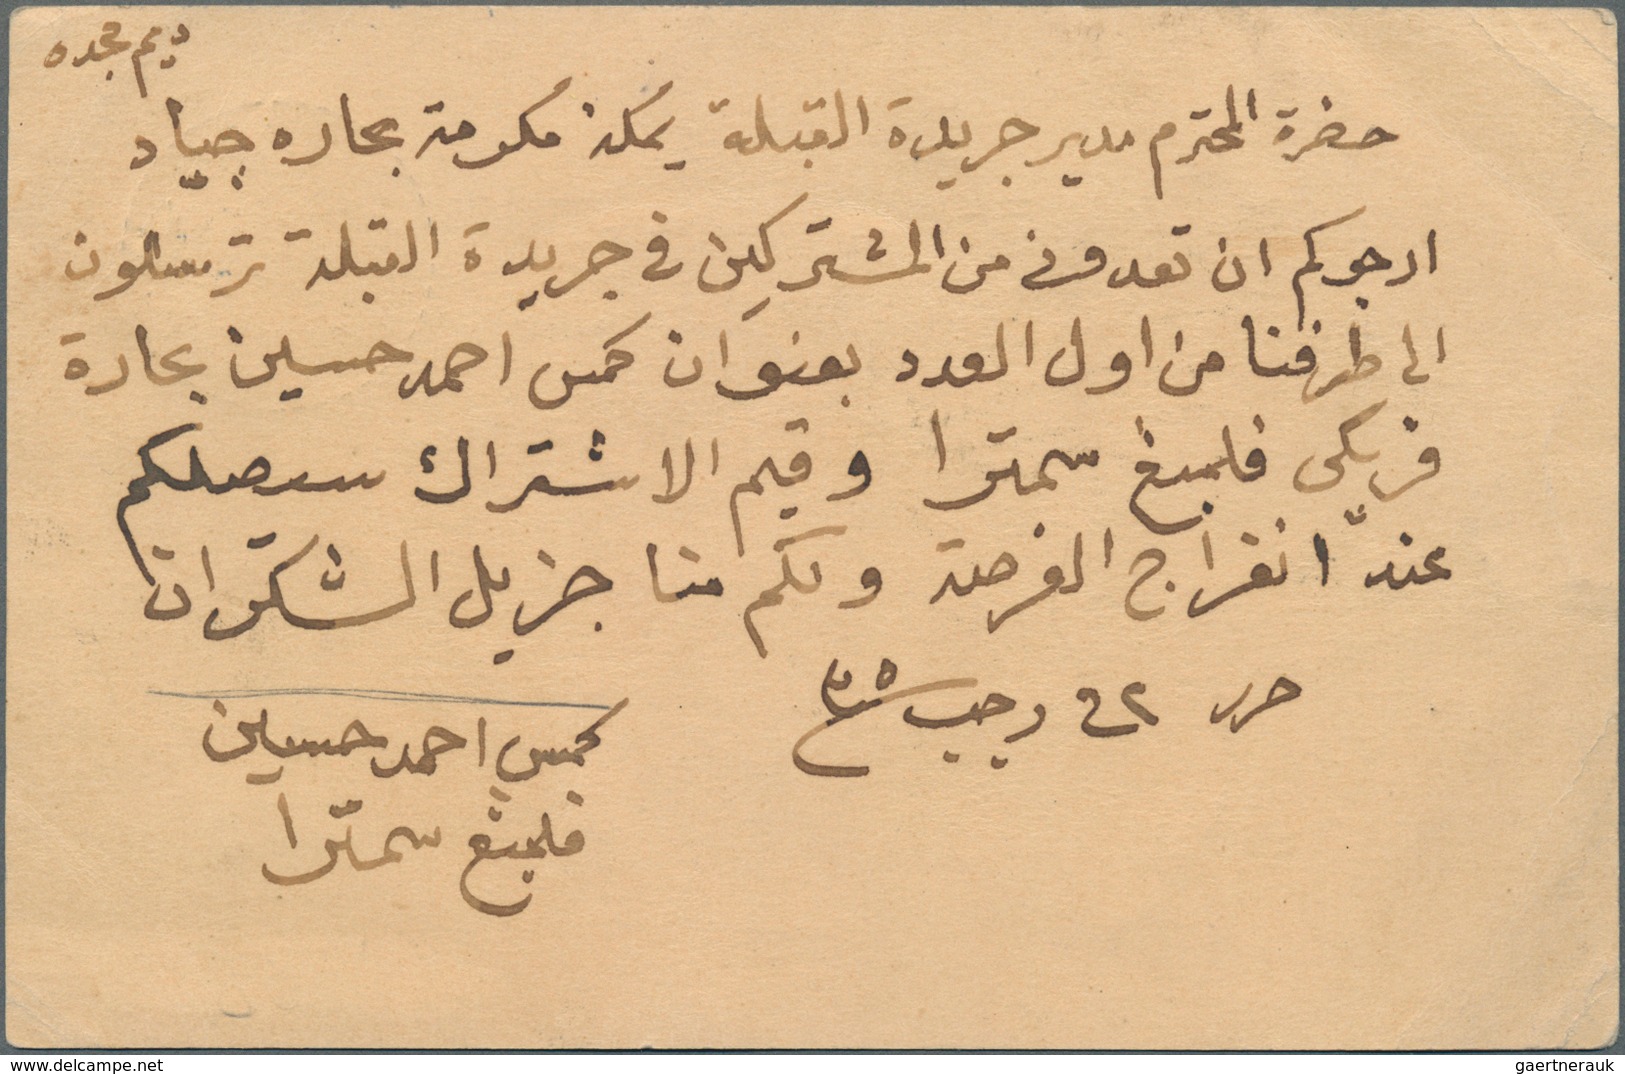 حضرة المحترم مدير جريدة القبلة بمكة مكرمة بحاره جياد
ارجوكم ان تعدوني من المشتركين في جريدة القبلة ترسلون
الى طرفنا من اول العدد بعنوان كمس احمد حسين بحارة
فلمبغ سمترا وقيم الاشتراك سيصلكم
عند انفراج الفرصة ولكم منا جزيل الشكران
حرر ٢٢ رجب سنة ٣٥
كمس احمد حسين
فلمبغ سمترا
delcampe.net
gaertnerauk